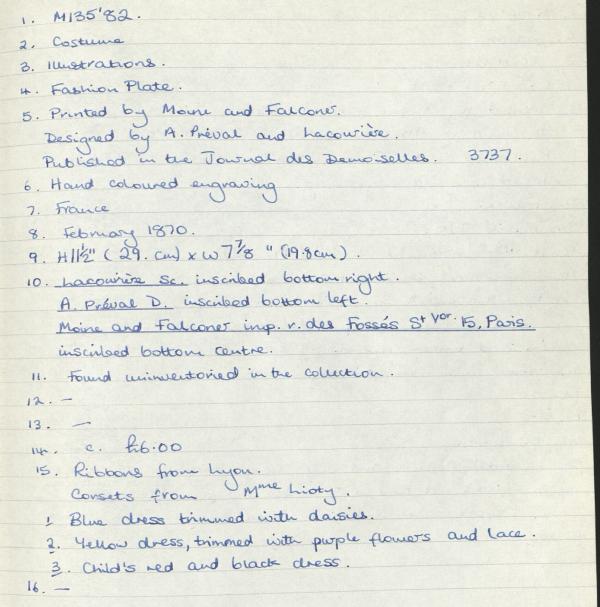 1. M135'82.
2. Costume
3. Illustrations.
4. Fashion Plate.
5. Printed by Moine and Falconer.
Designed by A. Préval and Lacourière.
Published in the Journal des Demoiselles. 3737.
6. Hand coloured engraving
7. France
8. February 1870.
9. H11½" (29. cm) x W 7⅞ " (19.8cm).
10. Lacourière Sc. inscribed bottom right.
A. Préval D. inscribed bottom left.
Moine and Falconer imp. r. des Fossés St Vor. 15, Paris.
inscribed bottom centre.
11. Found uninventoried in the collection.
12. –
13. –
14. c. £6.00
15. Ribbons from Lyon.
Corsets from Mme Lioty.
1 Blue dress trimmed with daisies.
2. Yellow dress, trimmed with purple flowers and lace.
3. Child's red and black dress.
16. –